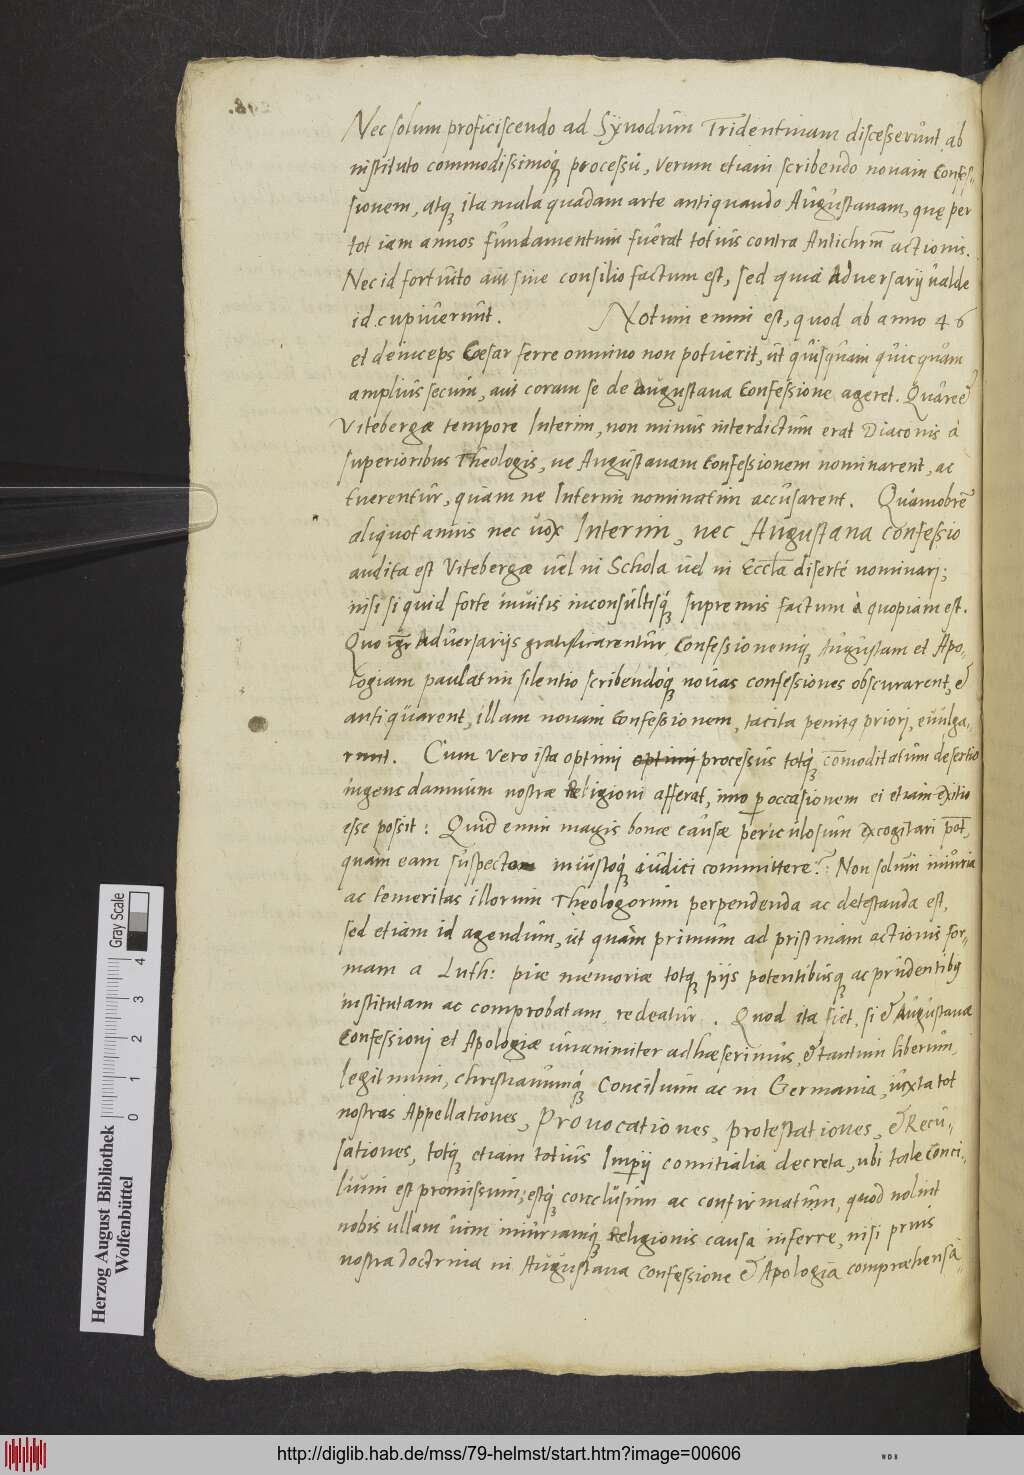 Nec solum proficiscendo ad Synodum Tridentinam discesserunt ab
instituto commodissimoq; processu, verum etiam scribendo novam Confes-
sionem, atq; ita mala quadam arte antiquando Augustanam, quę per
tot iam annos fundamentum fuerat totius contra Antichrm actionis.
Nec id fortuito aut sine consilio factum est, sed quia adversarij valde
id cupiverunt. Notum enim est, quod ab anno 46
et deinceps Cæsar ferre omnino non potuerit, ut quisquam quicquam
amplius secum, aut coram se de Augustana Confessione ageret. Quare et
Vitebergæ tempore Interim, non minus interdictum erat Diaconis à
superioribus Theologis, ne Augustanam Confessionem nominarent, ac
tuerentur, quàm ne Interim nominatim accusarent. Quamobrē
aliquot annis nec vox Interim, nec Augustana confessio
audita est Vitebergæ vel in Schola vel in Eccla disertè nominari;
nisi si quid forte invitis inconsultisq; supremis factum à quopiam est.
Quo igr adversarijs gratificarentur, Confessionemq; Augustam et Apo-
logiam paulatim silentio scribendoq; novas confessiones obscurarent, et
antiquarent, illam novam Confessionem, tacita penitq priori, evulga-
runt. Cum vero ista optimi optimi processus totq; comoditatum desertio
ingens damnum nostræ Religioni afferat, imo p occasionem ei etiam exitio
esse possit: Quid enim magis bonæ causæ periculosum excogitari pot,
quàm eam suspecto iniustoq; iudici committere? : Non solum iniuria
ac temeritas illorum Theologorum perpendenda ac detestanda est,
sed etiam id agendum, ut quàm primum ad pristinam actionis for-
mam a Luth: piæ memoriæ totq; pijs potentibusq; ac prudentibq
institutam ac comprobatam redeatur. Quod ita fiet, si et Augustana
Confessioni et Apologiæ unanimiter adhæserimus, et tantum liberum,
legitimum, christianumq; Concilium ac in Germania, iuxta tot
nostras Appellationes, Provocationes, protestationes, et Recu-
sationes, totq; etiam totius Imperij comitialia decreta, ubi tale Conci-
lium est promissum; estq; conclusum ac confirmatum, quod nolint
nobis ullam vim iniuriamq; Religionis causa inferre, nisi prius
nostra doctrina in Augustana Confessione et Apologia compræhensa
Herzog August Bibliothek
Wolfenbüttel
Gray Scale
0 1 2 3 4
http://diglib.hab.de/mss/79-helmst/start.htm?image=00606